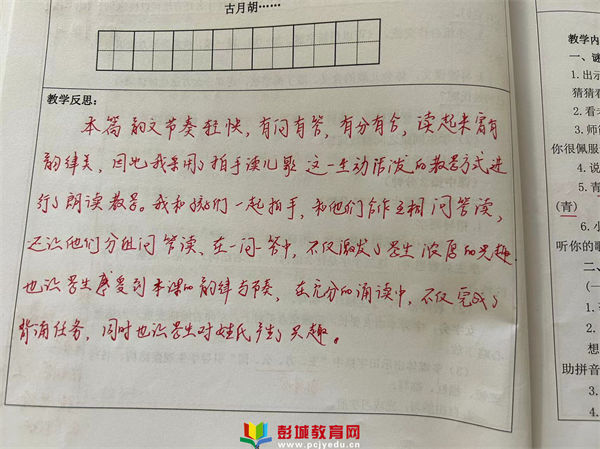 古月胡……
教学反思：
本篇韵文节奏轻快，有问有答，有分有合，读起来富有
韵律美，因此我采用了拍手读儿歌这一生动活泼的教学方式进
行了朗读教学。我和孩们一起拍手，和他们合作互相问答读，
还让他们分组问答读，在一问一答中，不仅激发了学生浓厚的兴趣
也让学生感受到本课的韵律与节奏，在充分的诵读中，不仅完成了
背诵任务，同时也让学生对姓氏产生了兴趣。
教学内
一、谜
1.出示
猜猜看
2.看老
3.师徒
你很佩服
4.说
5.青
(青)
6.小
听你的歌
二、
(一
1.
想
助拼音
3.
4.
彭城教育网
www.pcjyedu.cn